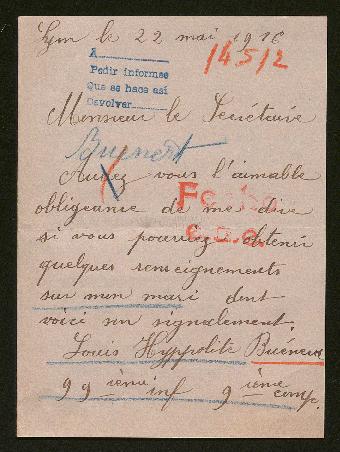 Lyon le 22 mai 1916
14512
A
Pedir informes
Que se haga así
Devolver
Monsieur le Secrétaire
Aurez vous l'aimable
obligeance de me dire
si vous pourriez obtenir
quelques renseignements
sur mon mari dont
voici son signalement
Louis Hyppolite
99 ième inf 9 ième comp.